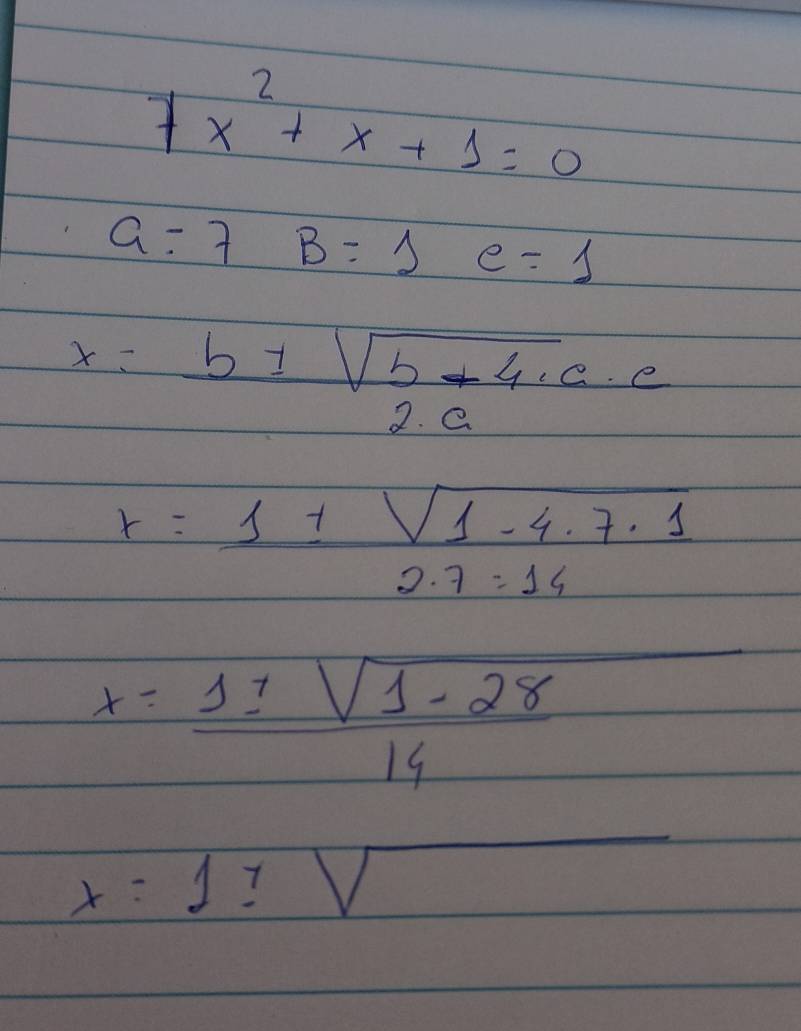 7x² + x + 1 = 0
a = 7 B = 1 c = 1
x = b ± √b - 4.a.c
2.a
x = 1 ± √1 - 4.7.1
2.7 = 14
x = 1 ± √1 - 28
14
x = 1 ± √